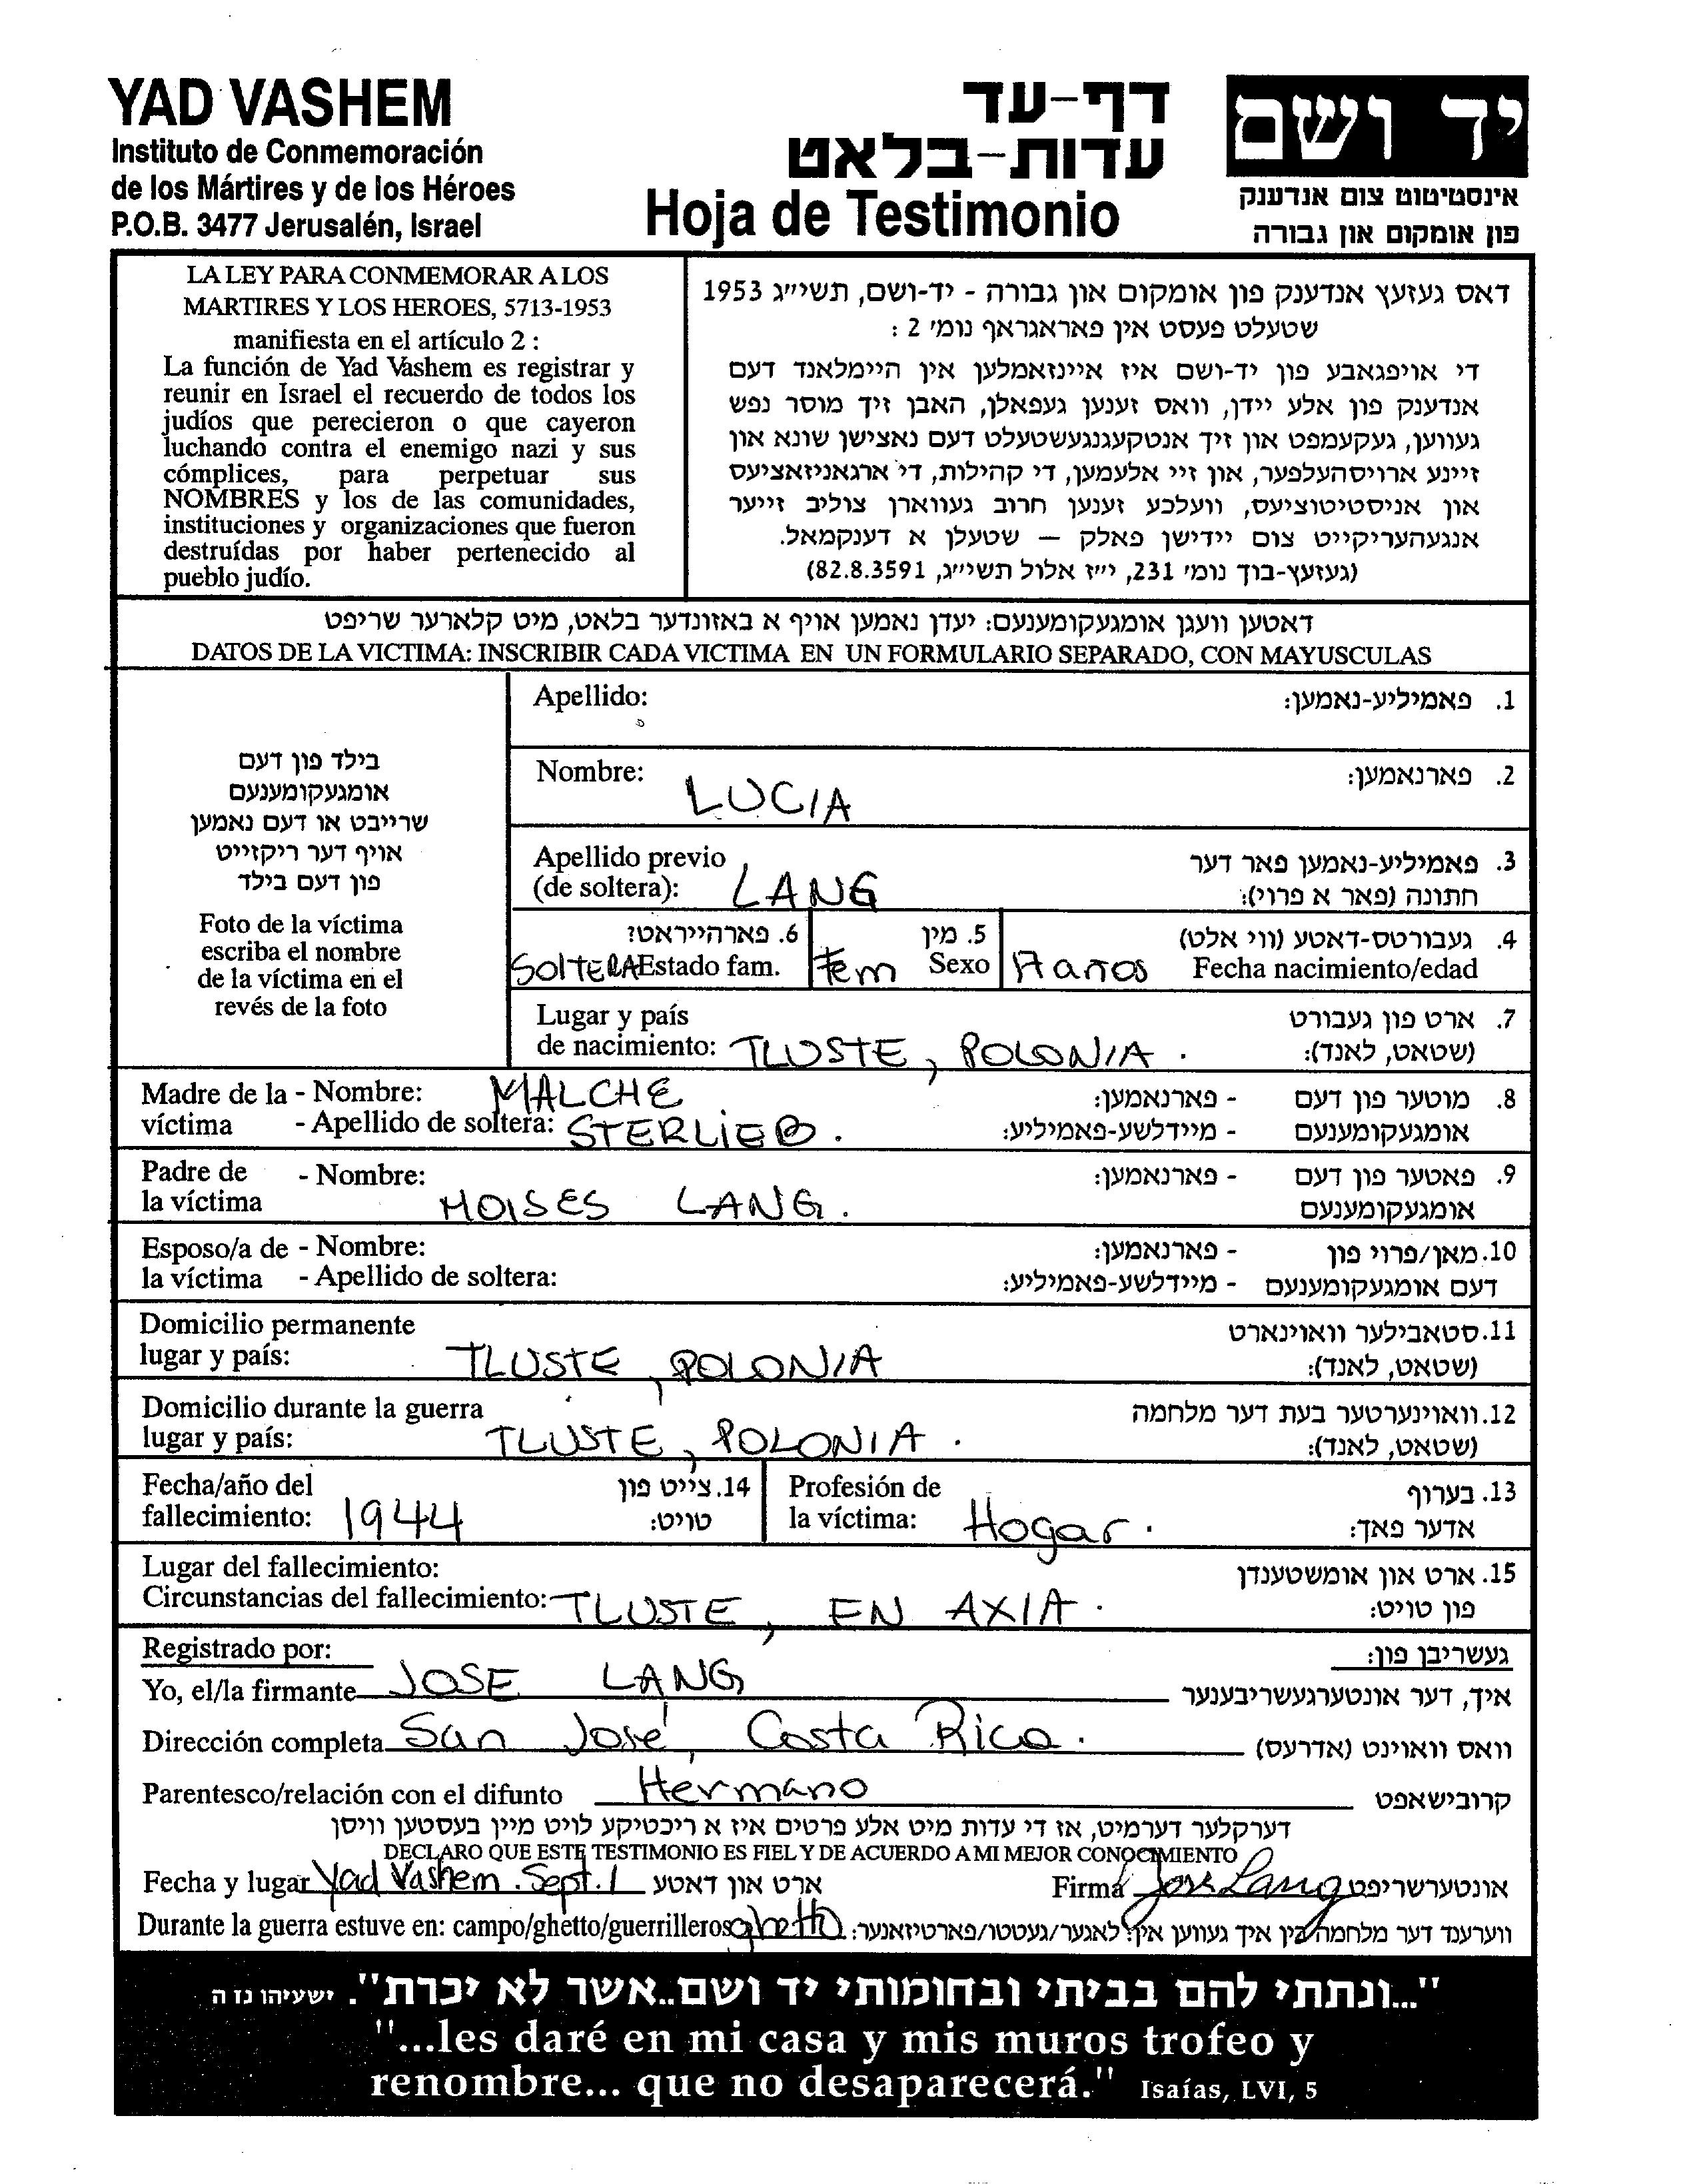 YAD VASHEM
Instituto de Conmemoración
de los Mártires y de los Héroes
P.O.B. 3477 Jerusalén, Israel
דף-עד
עדות-בלאט
Hoja de Testimonio
יד ושם
אינסטיטוט צום אנדענק
פון אומקום און גבורה
LA LEY PARA CONMEMORAR A LOS
MARTIRES Y LOS HEROES, 5713-1953
manifiesta en el artículo 2 :
La función de Yad Vashem es registrar y
reunir en Israel el recuerdo de todos los
judíos que perecieron o que cayeron
luchando contra el enemigo nazi y sus
cómplices, para perpetuar sus
NOMBRES y los de las comunidades,
instituciones y organizaciones que fueron
destruídas por haber pertenecido al
pueblo judío.
דאס געזעץ אנדענק פון אומקום און גבורה - יד-ושם, תשי״ג 1953
שטעלט פעסט אין פאראגראף נומ׳ 2 :
די אויפגאבע פון יד-ושם איז איינזאמלען אין היימלאנד דעם
אנדענק פון אלע יידן, וואס זענען געפאלן, האבן זיך מוסר נפש
געווען, געקעמפט און זיך אנטקעגנגעשטעלט דעם נאצישן שונא און
זיינע ארויסהעלפער, און זיי אלעמען, די קהילות, די ארגאניזאציעס
און אניסטיטוציעס, וועלכע זענען חרוב געווארן צוליב זייער
אנגעהעריקייט צום יידישן פאלק – שטעלן א דענקמאל.
(געזעץ-בוך נומ׳ 231, י״ז אלול תשי״ג, 82.8.3591)
דאטען וועגן אומגעקומענעם: יעדן נאמען אויף א באזונדער בלאט, מיט קלארער שריפט
DATOS DE LA VICTIMA: INSCRIBIR CADA VICTIMA EN UN FORMULARIO SEPARADO, CON MAYUSCULAS
בילד פון דעם
אומגעקומענעם
שרייבט או דעם נאמען
אויף דער ריקזייט
פון דעם בילד
Foto de la víctima
escriba el nombre
de la víctima en el
revés de la foto
Apellido: 1. פאמיליע-נאמען:
Nombre: LUCIA 2. פארנאמען:
Apellido previo 3. פאמיליע-נאמען פאר דער
(de soltera): LANG חתונה (פאר א פרוי):
6. פארהייראט? 5. מין 4. געבורטס-דאטע (ווי אלט)
SOLTERA Estado fam. Fem Sexo 17 años Fecha nacimiento/edad
Lugar y país 7. ארט פון געבורט
de nacimiento: TLUSTE, POLONIA. (שטאט, לאנד):
Madre de la - Nombre: MALCHE פארנאמען: - 8. מוטער פון דעם
víctima - Apellido de soltera: STERLIEB. מיידלשע-פאמיליע: - אומגעקומענעם
Padre de - Nombre: פארנאמען: - 9. פאטער פון דעם
la víctima MOISES LANG. אומגעקומענעם
Esposo/a de - Nombre: פארנאמען: - 10. מאן/פרוי פון
la víctima - Apellido de soltera: מיידלשע-פאמיליע: - דעם אומגעקומענעם
Domicilio permanente 11. סטאבילער וואוינארט
lugar y país: TLUSTE, POLONIA (שטאט, לאנד):
Domicilio durante la guerra 12. וואוינערטער בעת דער מלחמה
lugar y país: TLUSTE, POLONIA. (שטאט, לאנד):
Fecha/año del 14. צייט פון Profesión de 13. בערוף
fallecimiento: 1944 טויט: la víctima: Hogar. אדער פאך:
Lugar del fallecimiento: 15. ארט און אומשטענדן
Circunstancias del fallecimiento: TLUSTE, EN AXIA. פון טויט:
Registrado por: געשריבן פון:
Yo, el/la firmante JOSE LANG איך, דער אונטערגעשריבענער
Dirección completa San José, Costa Rica. וואס וואוינט (אדרעס)
Parentesco/relación con el difunto Hermano קרובישאפט
דערקלער דערמיט, אז די עדות מיט אלע פרטים איז א ריכטיקע לויט מיין בעסטען וויסן
DECLARO QUE ESTE TESTIMONIO ES FIEL Y DE ACUERDO A MI MEJOR CONOCIMIENTO
Fecha y lugar Yad Vashem. Sept. 1 ארט און דאטע Firma Jose Lang אונטערשריפט
Durante la guerra estuve en: campo/ghetto/guerrilleros ghetto ווערענד דער מלחמה בין איך געווען אין: לאגער/געטטו/פארטיזאנער:
"...ונתתי להם בביתי ובחומותי יד ושם..אשר לא יכרת". ישעיהו נז ה
"...les daré en mi casa y mis muros trofeo y
renombre... que no desaparecerá." Isaías, LVI, 5